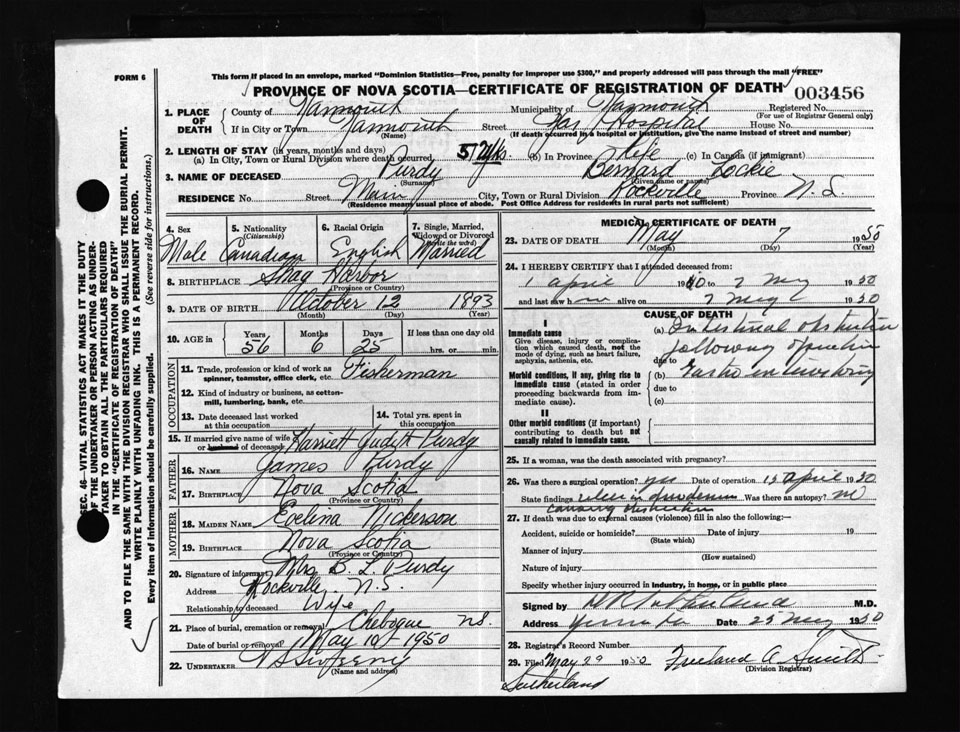 FORM 6
This form if placed in an envelope, marked "Dominion Statistics—Free, penalty for improper use $300," and properly addressed will pass through the mail "FREE"
PROVINCE OF NOVA SCOTIA—CERTIFICATE OF REGISTRATION OF DEATH
003456
SEC. 46—VITAL STATISTICS ACT MAKES IT THE DUTY OF THE UNDERTAKER OR PERSON ACTING AS UNDERTAKER TO OBTAIN ALL THE PARTICULARS REQUIRED IN THE "CERTIFICATE OF REGISTRATION OF DEATH" AND TO FILE THE SAME WITH THE DIVISION REGISTRAR WHO SHALL ISSUE THE BURIAL PERMIT.
WRITE PLAINLY WITH UNFADING INK. THIS IS A PERMANENT RECORD.
Every item of information should be carefully supplied. (See reverse side for instructions.)
1. PLACE OF DEATH
County of Yarmouth Municipality of Yarmouth Registered No.
(For use of Registrar General only)
If in City or Town Yarmouth Street Hospital House No.
(Name) (If death occurred in a hospital or institution, give the name instead of street and number)
2. LENGTH OF STAY (in years, months and days)
(a) In City, Town or Rural Division where death occurred (b) In Province Life (c) In Canada (if immigrant)
3. NAME OF DECEASED Purdy Bernard Lockie
(Surname) (Given name or names)
RESIDENCE No. Street Main City, Town or Rural Division Rockville Province N.S.
(Residence means usual place of abode. Post Office Address for residents in rural parts not sufficient)
4. Sex Male
5. Nationality (Citizenship) Canadian
6. Racial Origin English
7. Single, Married, Widowed or Divorced (Write the word) Married
8. BIRTHPLACE Shag Harbor
(Province or Country)
9. DATE OF BIRTH October 12 1893
(Month) (Day) (Year)
10. AGE in Years 56 Months 6 Days 25 If less than one day old hrs. or min.
OCCUPATION
11. Trade, profession or kind of work as spinner, teamster, office clerk, etc. Fisherman
12. Kind of industry or business, as cotton-mill, lumbering, bank, etc.
13. Date deceased last worked at this occupation
14. Total yrs. spent in this occupation
15. If married give name of wife or husband of deceased Harriett Judith Purdy
FATHER
16. NAME James Purdy
17. BIRTHPLACE Nova Scotia
(Province or Country)
MOTHER
18. MAIDEN NAME Evelina Nickerson
19. BIRTHPLACE Nova Scotia
(Province or Country)
20. Signature of informant Mrs B. L. Purdy
Address Rockville, N.S.
Relationship to deceased Wife
21. Place of burial, cremation or removal Chebogue N.S.
Date of burial or removal May 10 1950
22. UNDERTAKER
(Name and address)
MEDICAL CERTIFICATE OF DEATH
23. DATE OF DEATH May 7 1950
(Month) (Day) (Year)
24. I HEREBY CERTIFY that I attended deceased from:
1 April 1950 to 7 May 1950
and last saw him alive on 7 May 1950
CAUSE OF DEATH
I
Immediate cause
Give disease, injury or complication which caused death, not the mode of dying, such as heart failure, asphyxia, asthenia, etc.
(a) Intestinal obstruction following operation
due to
Morbid conditions, if any, giving rise to immediate cause (stated in order proceeding backwards from immediate cause).
(b) Gastro
due to
(c)
II
Other morbid conditions (if important) contributing to death but not causally related to immediate cause.
25. If a woman, was the death associated with pregnancy?
26. Was there a surgical operation? yes Date of operation 13 April 1950
State findings ulcer in duodenum Was there an autopsy? no
causing obstruction
27. If death was due to external causes (violence) fill in also the following:—
Accident, suicide or homicide? Date of injury 19
(State which)
Manner of injury
(How sustained)
Nature of injury
Specify whether injury occurred in industry, in home, or in public place
Signed by Sutherland M.D.
Address Yarmouth Date 25 May 1950
28. Registrar's Record Number
29. Filed May 29 1950 Freeland A. Smith
(Division Registrar)
Sutherland